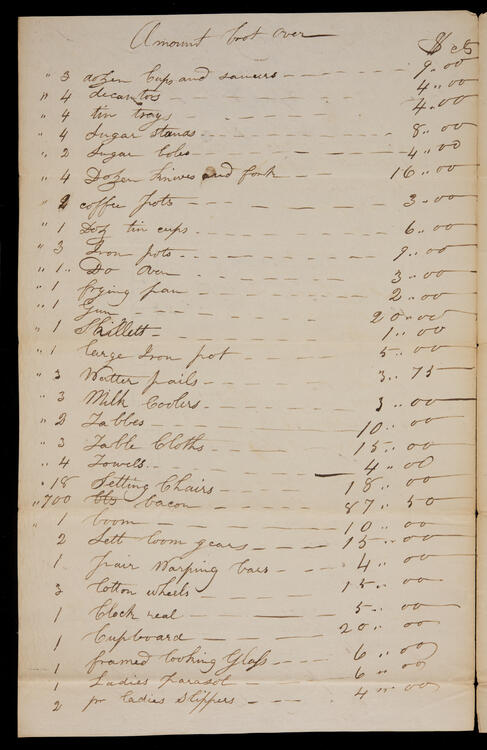 Amount brot over
$ cts
" 3 dozen Cups and saucers 9..00
" 4 decantos 4..00
" 4 tin trays 4.00
" 4 Sugar stands 8..00
" 2 Sugar boles 4..00
" 4 Dozen knives and fork 16..00
" 2 coffee pots 3..00
" 1 Doz tin cups 6..00
" 3 Iron pots 9..00
" 1 Do oven 3..00
" 1 frying pan 2..00
" 1 Gun 20.00
" 1 Skillett 1..00
" 1 large Iron pot 5..00
" 3 Watter pails 3..75
" 3 Milk Coolers 3..00
" 2 Tabbes 10..00
" 3 Table Cloths 15..00
" 4 Towels 4..00
" 18 Setting Chairs 18..00
" 700 lbs bacon 87..50
" 1 loom 10..00
2 Sett loom gears 15..00
1 pair Warping bars 4..00
3 Cotton wheels 15..00
1 Clock real 5..00
1 Cupboard 20..00
1 framed looking Glass 6..00
1 Ladies Parasol 6..00
2 pr ladies Slippers 4..00